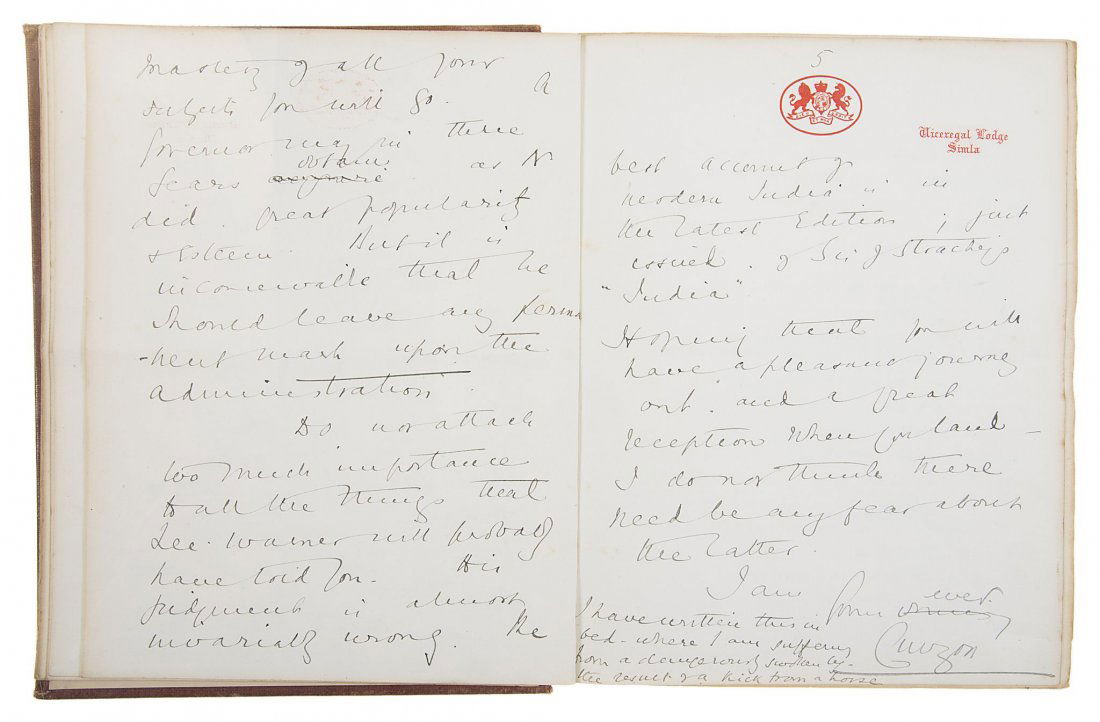 mastery of all your
subjects you will go. A
Governor may in three
obtain
years acquire as N
did great popularity
& esteem. But it is
inconceivable that he
should leave any perma
-nent mark upon the
administration.
Do not attach
too much importance
to all the things that
Lee-Warner will probably
have told you. His
judgment is almost
invariably wrong. The
5
Viceregal Lodge
Simla
best account of
modern India is in
the latest Edition, just
issued, of Sir J Strachey's
"India"
Hoping that you will
have a pleasant journey
out and a great
reception when you land -
I do not think there
need be any fear about
the latter.
ever
I am Yours
Curzon
I have written this in
bed - where I am suffering
from a dangerously swollen leg -
the result of a kick from a horse